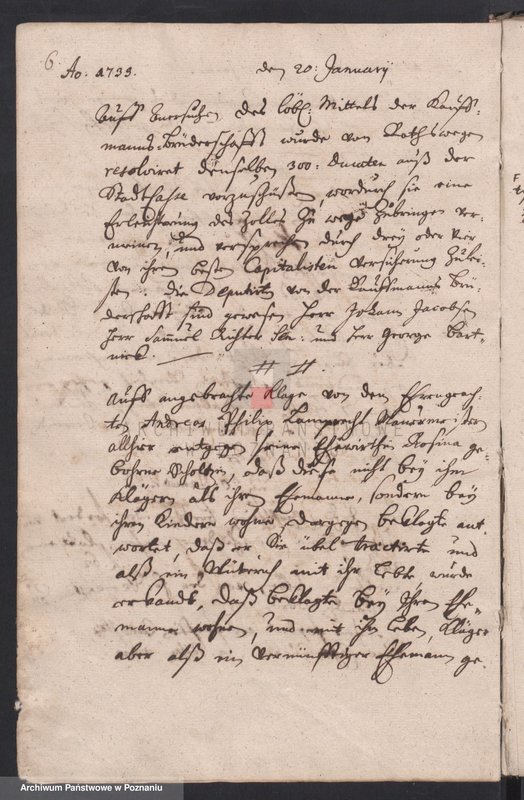 6
Ao: 1733. den 20: January
Auff Ansuchen des löbl. Mittels der Kauff-
manns-Brüderschafft wurde von Rathswegen
resolviret denselben 300: Ducaten auß der
Stadt Cassa vorzuschüßen, wordurch sie eine
Erleuchterung des Zolls zu wege zu bringen ver-
meinen, und versprechen durch drey oder vier
von ihren besten Capitalisten Versicherung zu lei-
sten. Die Deputirte von der Kauffmanns Brü-
derschafft sind gewesen Herr Johann Jacobsen
Herr Samuel Richter Sen: und Herr George Bart-
nick.
Auffs angebrachte Klage von dem Ehrngeach-
ten Andreas Philip Lamprecht Maurermeistern
allhier entgegen seine Ehewirthin Rosina ge-
bohrne Scholtzin, daß diese nicht bey ihm
Klägern als ihren Ehemanne, sondern bey
ihren Kindern wohne, dargegen beklagte ant-
wortet, daß er Sie übel tractirte und
alß ein Wüterich mit ihr lebte wurde
erkandt, daß beklagte bey Ihren Ehe-
manne wohnen, und mit ihm leben, Kläger
aber alß ein vernünfftiger Ehemann ge-
Archiwum Państwowe w Poznaniu